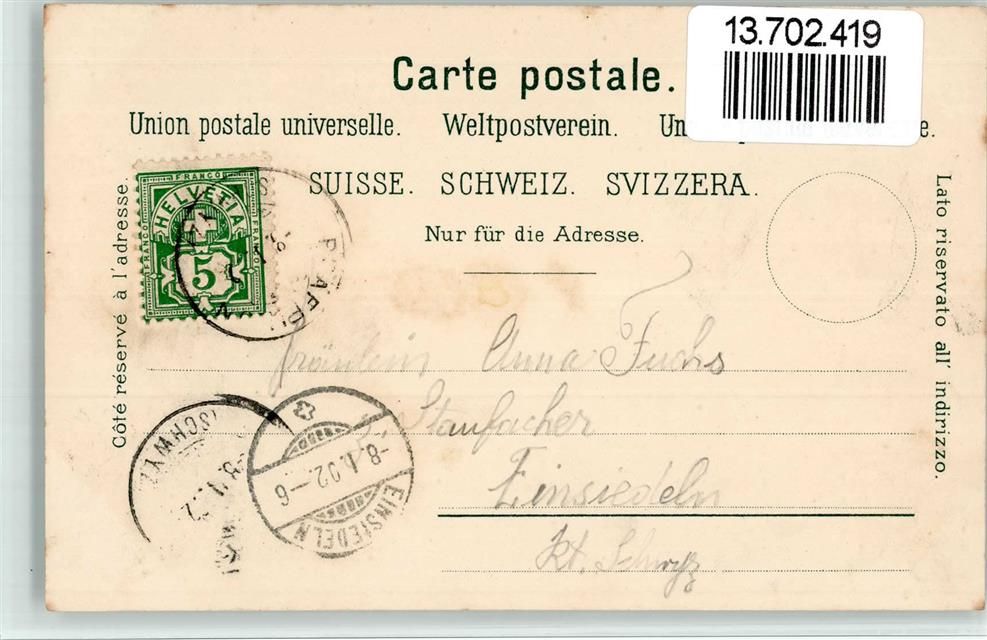 13.702.419
Carte postale.
Union postale universelle. Weltpostverein.
SUISSE. SCHWEIZ. SVIZZERA.
Nur für die Adresse.
Côté réservé à l'adresse.
Lato riservato all' indirizzo.
FRANCO
HELVETIA
FRANCO
FRANCO
5
Fräulein Anna Fuchs
Staufacher
Einsiedeln
Kt. Schwyz
SCHWYZ
-8.I.02.-6
EINSIEDELN